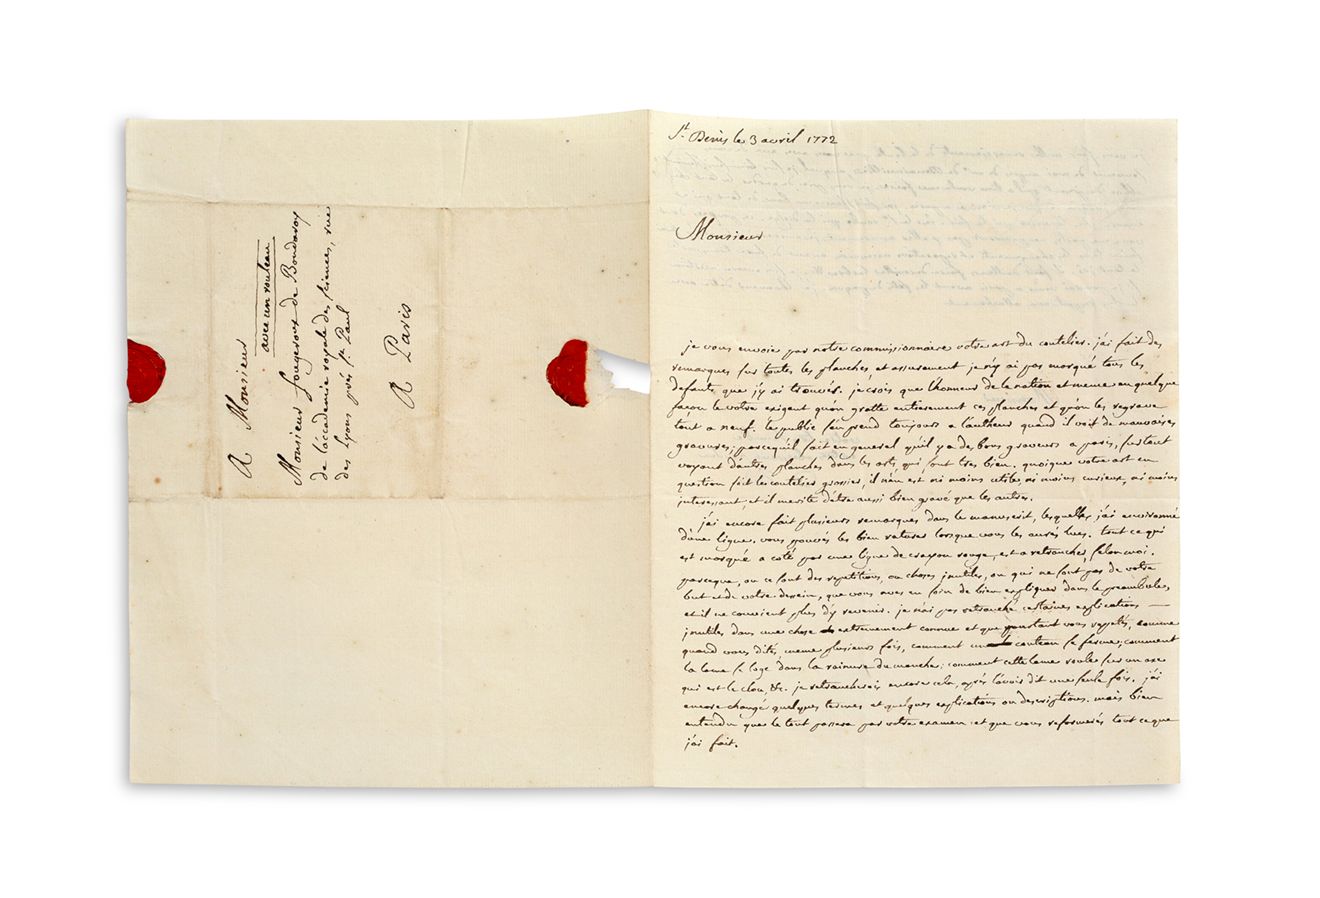 A Monsieur
avec un rouleau
Monsieur fougeroux de Bondaroy
de l'accademie royale des sciences, rue
des Lyons prés st. Paul
A Paris
St. Denis le 3 avril 1772
Monsieur
je vous envoie par notre commissionnaire votre art du coutelier. j'ai fait des
remarques sur toutes les planches et assurement je n'y ai pas marqué tous les
defauts que j'y ai trouvés. je crois que l'honneur de la nation et meme en quelque
façon le votre exigent qu'on gratte entierement ces planches et qu'on les regrave
tout a neuf. le public s'en prend toujours a l'autheur quand il voit de mauvaises
gravures; parcequ'il sait en general qu'il y a de bons graveurs a paris, surtout
voyant d'autres planches dans les arts, qui sont tres bien. quoique votre art en
question soit les coutelier grossier, il n'en est ni moins utile, ni moins curieux, ni moins
interessant, et il merite d'etre aussi bien gravé que les autres.
j'ai encore fait plusieurs remarques dans le manuscrit, lesquelles j'ai environné
d'une ligne. vous pouvés les bien raturer lorsque vous les aurés lues. tout ce qui
est marqué a coté par une ligne de crayon rouge, est a retrancher, selon moi.
parceque, ou ce sont des repetitions, ou choses inutiles, ou qui ne sont pas de votre
but et de votre dessein, que vous avés eu soin de bien expliquer dans le preambule,
et il ne convient plus d'y revenir. je n'ai pas retranché certaines explications
inutiles dans une chose extremement connue et que pourtant vous repetés, comme
quand vous dites, meme plusieurs fois, comment un couteau se ferme, comment
la lame se loge dans la rainure du manche; comment cette lame roule sur un axe
qui est le clou, &c. je retrancherois encore cela, après l'avoir dit une seule fois. j'ai
encore changé quelques termes et quelques explications ou descriptions. mais bien
entendu que le tout passera par votre examen et que vous reformerés tout ce que
j'ai fait.